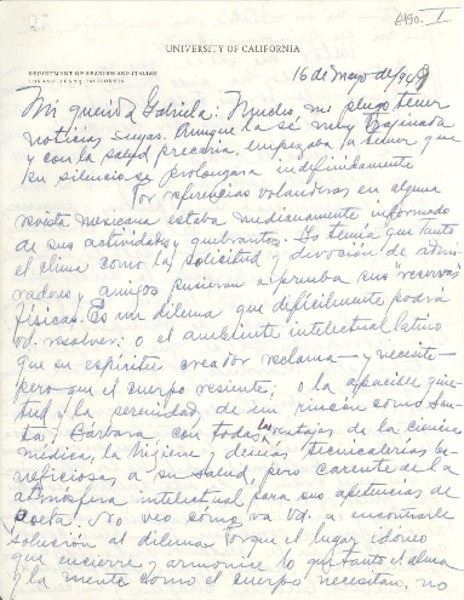 A590. I
UNIVERSITY OF CALIFORNIA
DEPARTMENT OF SPANISH AND ITALIAN
LOS ANGELES 24, CALIFORNIA
16 de Mayo de/949
Mi querida Gabriela: Mucho me plugo tener
noticias suyas. Aunque la sé muy trajinada
y con la salud precaria, empezaba a temer que
su silencio se prolongara indefinidamente
Por referencias volanderas en alguna
revista mexicana estaba medianamente informado
de sus actividades y quebrantos. Yo temía que tanto
el clima como la solicitud y devoción de admi-
radores y amigos pusieran a prueba sus "reservas"
físicas. Es un dilema que difícilmente podrá
Vd. resolver: o el ambiente intelectual latino
que su espíritu creador reclama—y necesita—
pero que el cuerpo resiente; o la apacible quie-
tud y la serenidad de un rincón como San-
ta Bárbara, con todas las ventajas de la ciencia
médica, la higiene y demás tecniquerías be-
neficiosas a su salud, pero carente de la
atmósfera intelectual para sus apetencias de
poeta. No veo cómo va Vd. a encontrarle
solución al dilema porque el lugar idóneo
que encierre y armonice lo que tanto el alma
y la mente como el cuerpo necesitan, no